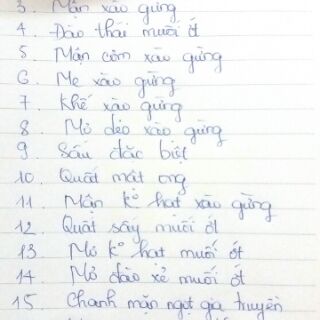 3. Mận xào gừng
4. Đào thái muối ớt
5. Mận cơm xào gừng
6. Me xào gừng
7. Khế xào gừng
8. Mơ dẻo xào gừng
9. Sấu đặc biệt
10. Quất mật ong
11. Mận k° hạt xào gừng
12. Quất sấy muối ớt
13. Mơ k° hạt muối ớt
14. Mơ đào xẻ muối ớt
15. Chanh mặn ngọt gia truyền